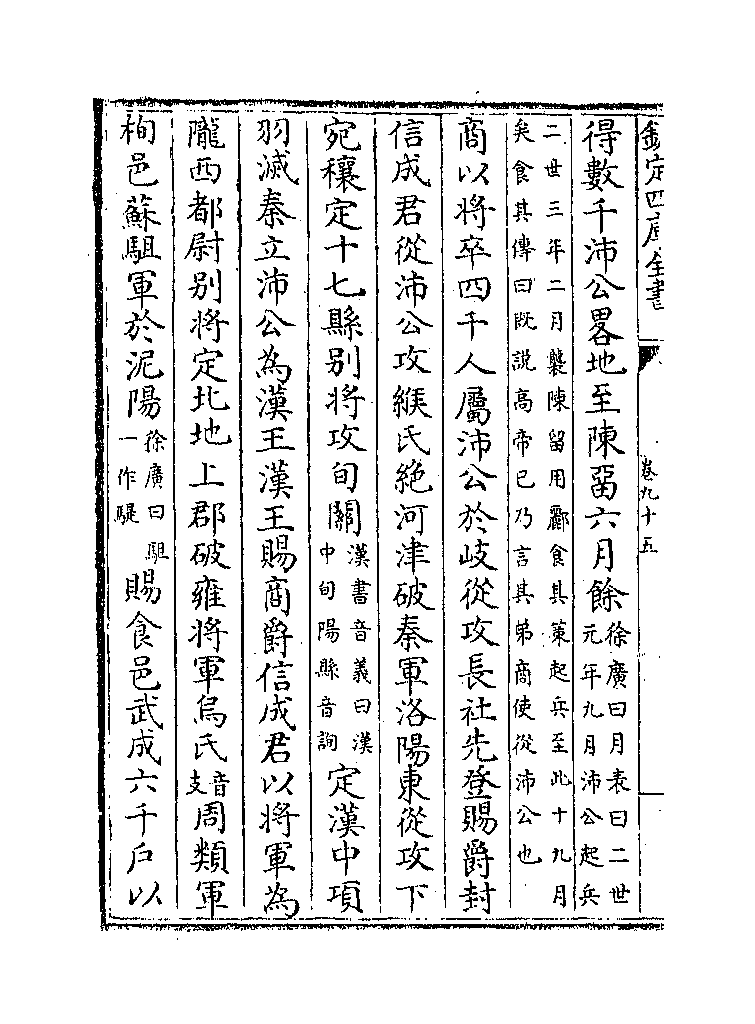 欽定四庫全書
卷九十五
得數千沛公畧地至陳留六月餘徐廣曰月表曰二世元年九月沛公起兵
二世三年二月襲陳留用酈食其策起兵至此十九月矣食其傳曰既說高帝已乃言其弟商使從沛公也
商以將卒四千人屬沛公於岐從攻長社先登賜爵封
信成君從沛公攻緱氏絶河津破秦軍洛陽東從攻下
宛穰定十七縣别將攻旬關漢書音義曰漢中旬陽縣音詢定漢中項
羽滅秦立沛公為漢王漢王賜商爵信成君以將軍為
隴西都尉别將定北地上郡破雍將軍烏氏音支周類軍
栒邑蘇駔軍於泥陽徐廣曰駔一作騠賜食邑武成六千戶以